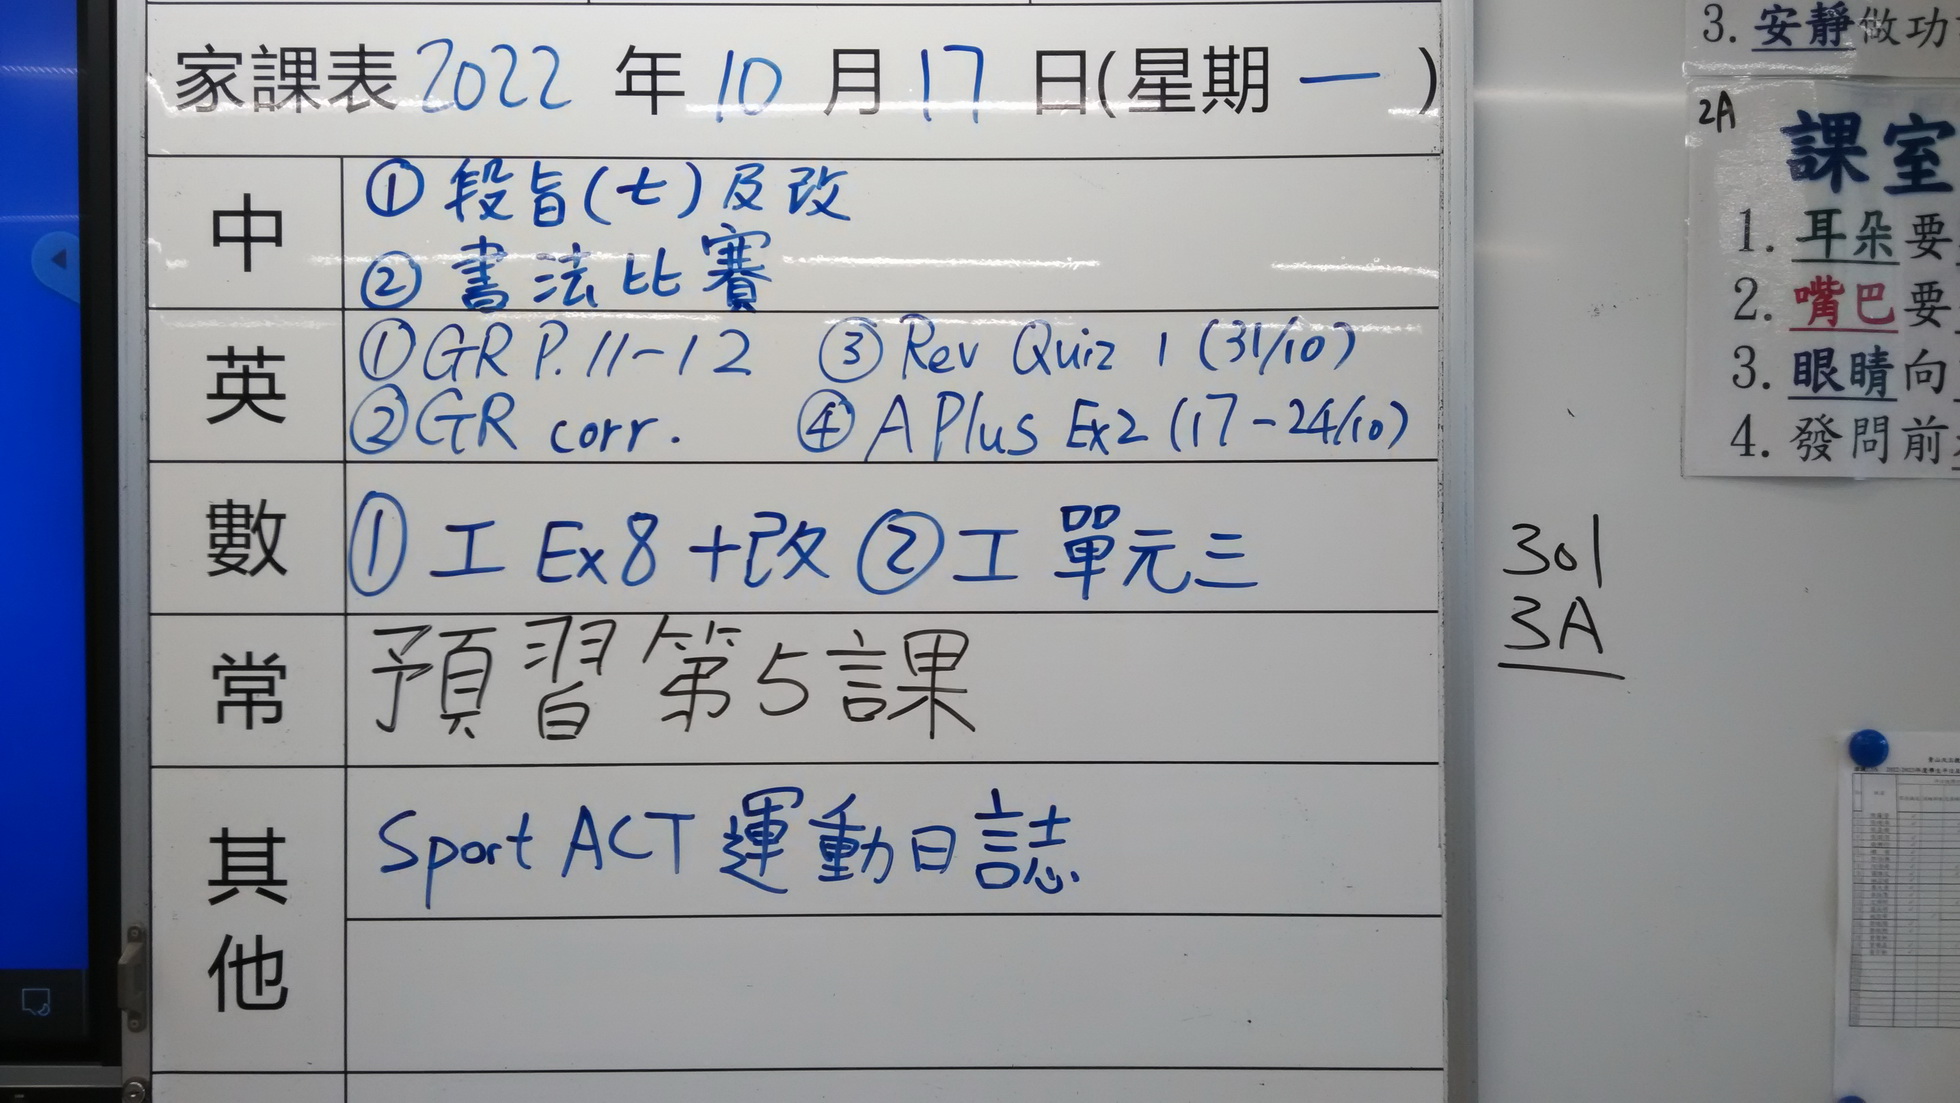 家課表 2022 年 10 月 17 日(星期 一 )
中
① 段旨(七)及改
② 書法比賽
英
① GR P.11-12 ③ Rev Quiz 1 (31/10)
② GR corr. ④ A Plus Ex2 (17-24/10)
數
① 工 Ex 8 +改 ② 工 單元三
常
預習第5課
其他
Sport ACT 運動日誌
301
3A
3. 安靜做功
2A
課室
1. 耳朵要
2. 嘴巴要
3. 眼睛向
4. 發問前